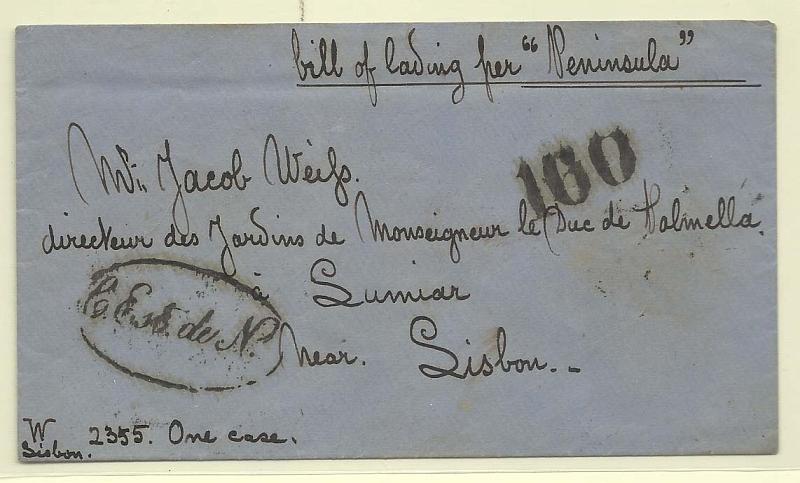 bill of lading per "Peninsula"
160
Mr. Jacob Weiss.
directeur des Jardins de Monseigneur le Duc de Palmella
à Lumiar
near. Lisbon..
C. Est. de N.
W 2355. One case.
Lisbon.